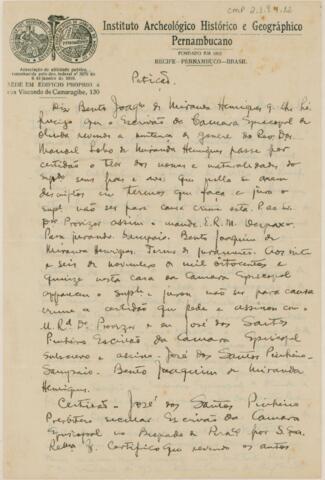 CMP 2.1.9.4.12
Instituto Archeológico Histórico e Geográphico
Pernambucano
FUNDADO EM 1862
RECIFE - PERNAMBUCO - BRASIL
Associação de utilidade publica,
reconhecida pelo dec. federal nº
SÉDE EM EDIFICIO PROPRIO Á
rua Visconde de Camaragibe, 130
Petição.
Diz Bento Joaqᵐ de Miranda Henriques q. lhe hé
preciso que o Escrivão da Camara Episcopal de
Olinda revendo a sentença de genere do Rev. Dor.
Manoel Lobo de Miranda Henriques passe por
certidão o teor dos nomes e naturalidades do
supdo. seus pais e avós que nella se acem
descriptos em termos que faça e jura o
supl não ser para cauza crime esta. P. a
por Provizor assim o mande. E. R. M. Despaxo
Passe jurando. Sampaio. Bento Joaquim de
Miranda Henriques. Termo de juramento. Aos vinte
e seis de novembro de mil oitocentos e
quinze nesta casa da Camara Episcopal
appareceu o Supl. e jurou não ser para causa
crime a certidão que pede e assinou com
M. Rdº Dr. Provizor e eu José dos Santos
Pinheiro Escrivão da Camara Episcopal
subscrevo e assino. José dos Santos Pinheiro.
Sampaio. Bento Joaquim de Miranda
Henriques.
Certidão. José dos Santos Pinheiro
Presbitero secular Escrivão da Camara
Episcopal no Bispado de por S. Exa.
Revma. Certifico que revendo os autos